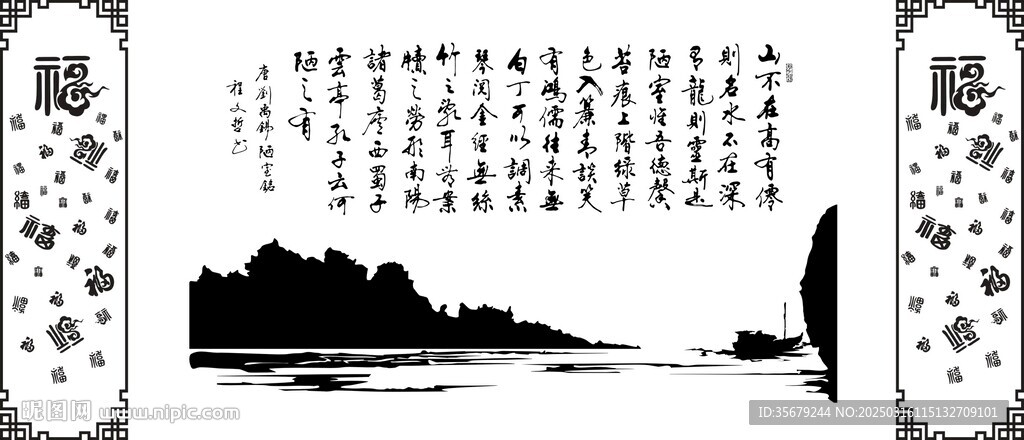 山不在高有僊
則名水不在深
有龍則靈斯是
陋室惟吾德馨
苔痕上階綠草
色入簾青談笑
有鴻儒往來無
白丁可以調素
琴閱金經無絲
竹之亂耳無案
牘之勞形南陽
諸葛廬西蜀子
雲亭孔子云何
陋之有
唐劉禹錫陋室銘
程文哲书
福
福
昵图网 www.nipic.com
ID:35679244 NO:20250316115132709101